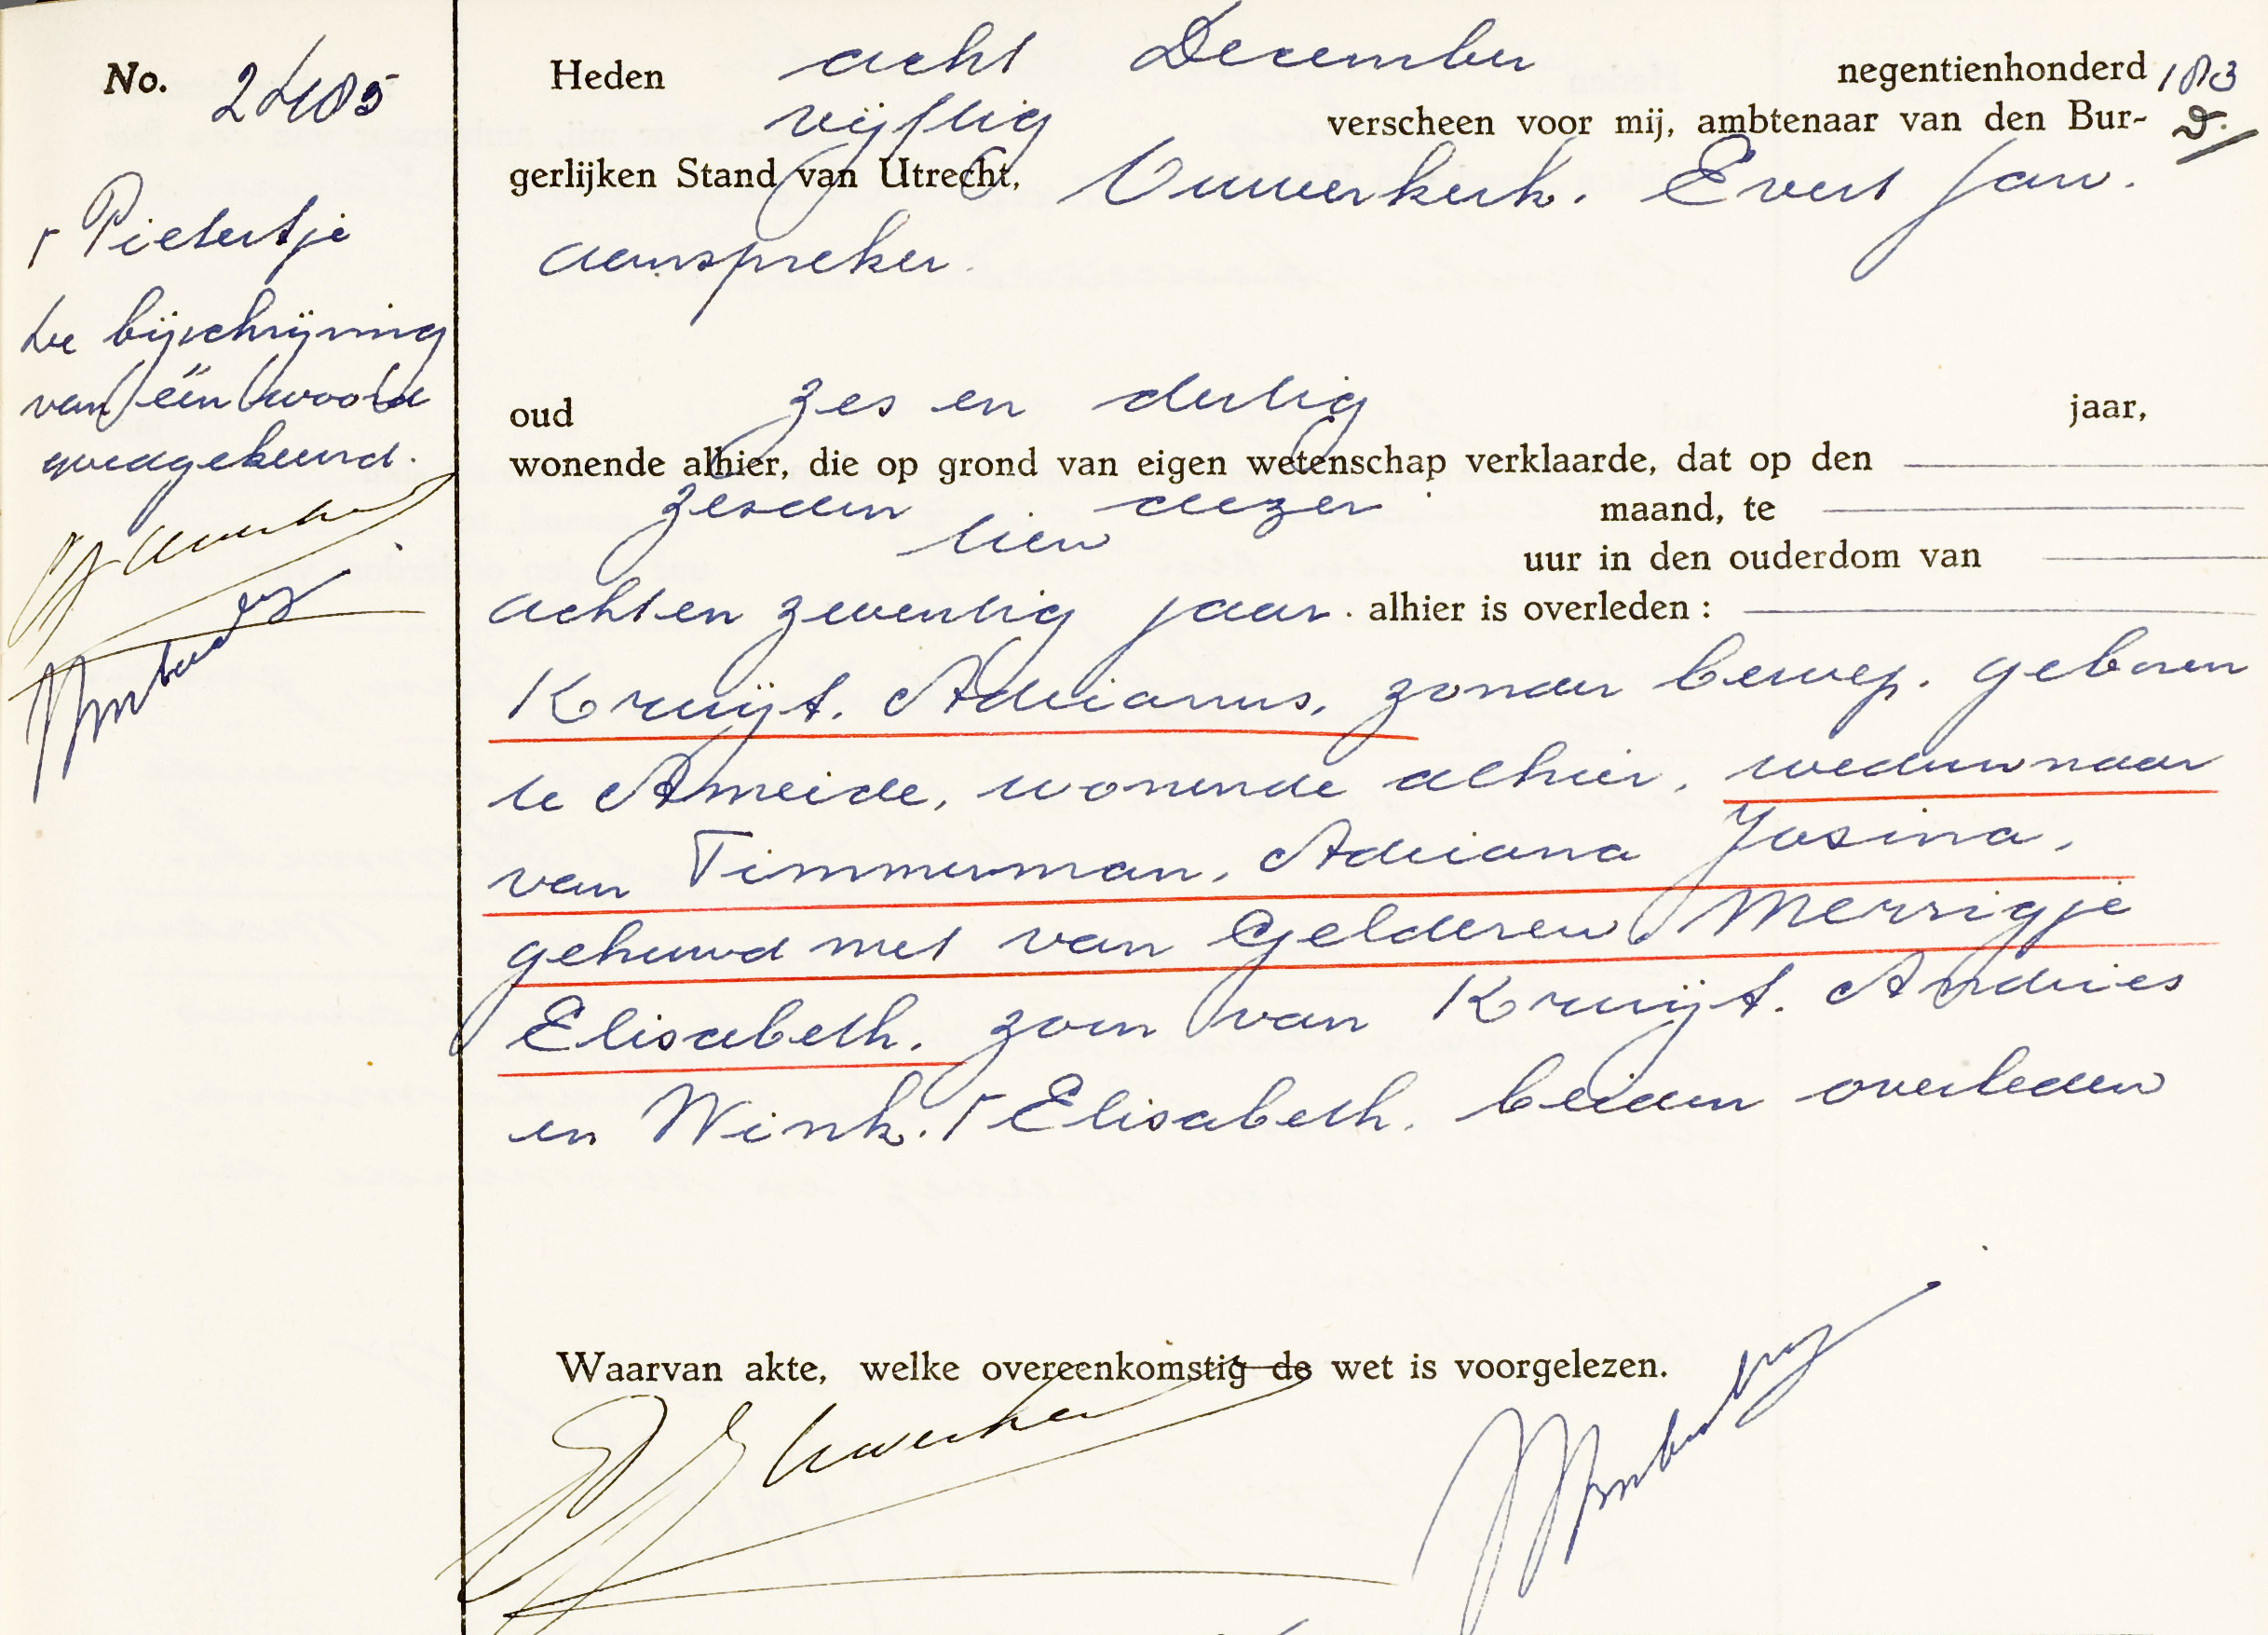 No. 2405
┌ Pietertje
De bijschrijving
van één woord
goedgekeurd.
Heden acht December negentienhonderd 183
vijftig verscheen voor mij, ambtenaar van den Bur- D.
gerlijken Stand van Utrecht, Ouwerkerk. Evert Jan.
aanspreker.
oud zes en dertig jaar,
wonende alhier, die op grond van eigen wetenschap verklaarde, dat op den
zesden dezer maand, te
tien uur in den ouderdom van
acht en zeventig jaar. alhier is overleden :
Kruijt. Adrianus, zonder beroep. geboren
te Ameide, wonende alhier, weduwnaar
van Timmerman, Adriana Josina,
gehuwd met van Gelderen, Merrigje
Elisabeth. zoon van Kruijt. Andries
en Wink. ┌ Elisabeth. beiden overleden
Waarvan akte, welke overeenkomstig de wet is voorgelezen.